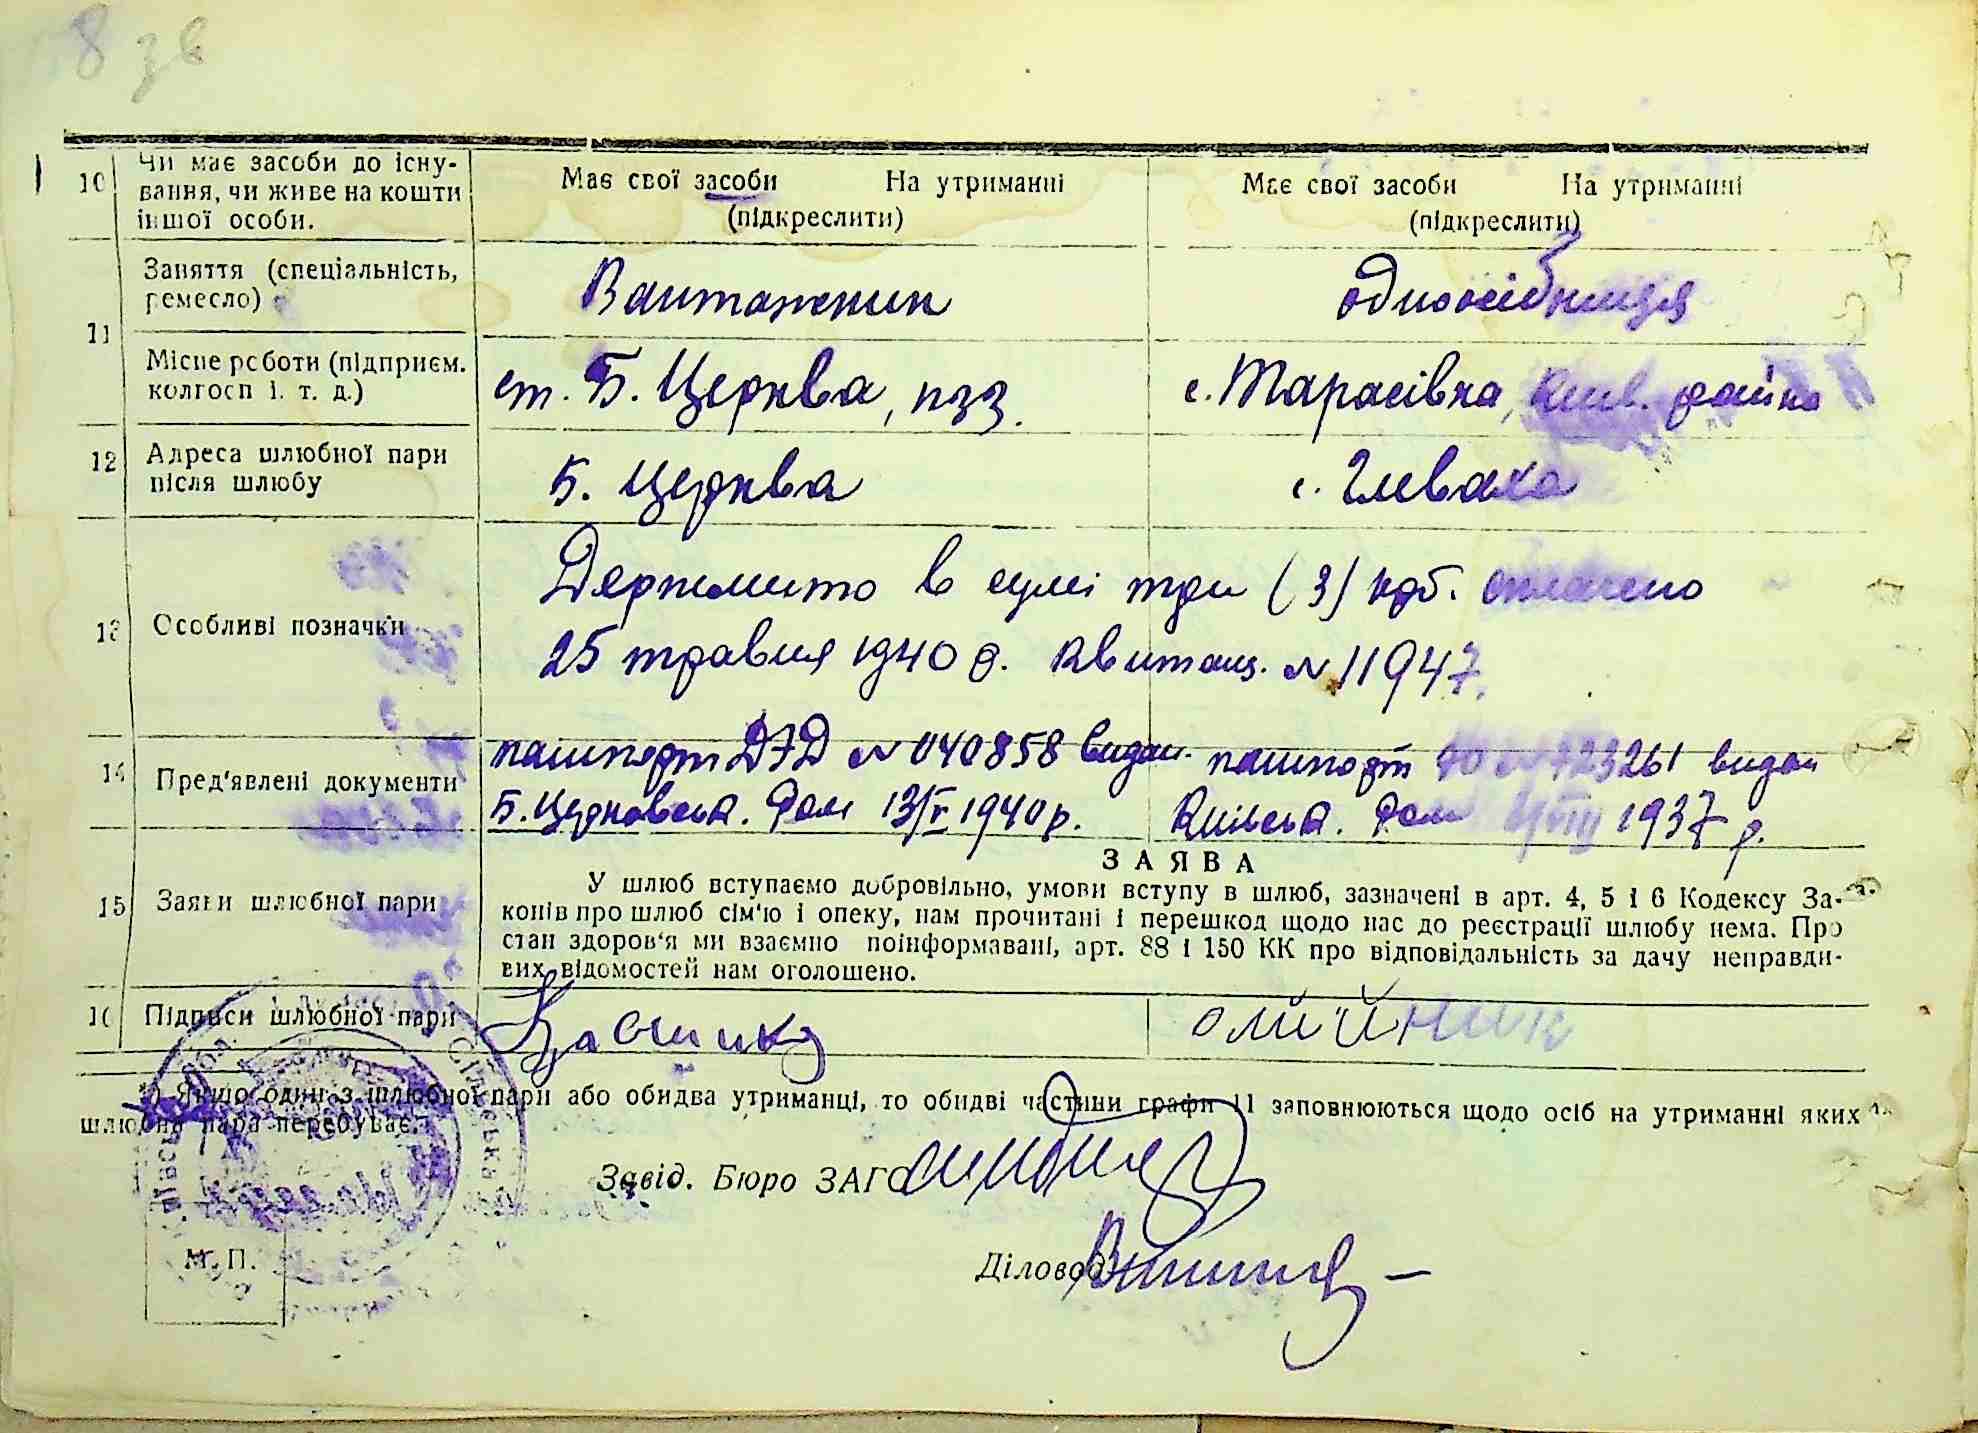 8 зв
10 Чи має засоби до існу-
вання, чи живе на кошти
іншої особи.
Має свої засоби На утриманні
(підкреслити)
Має свої засоби На утриманні
(підкреслити)
11 Заняття (спеціальність,
ремесло)
Вантажник
одноосібниця
Місце роботи (підприєм.
колгосп і. т. д.)
ст. Б. Церква, пзз.
с. Тарасівка, Київ. района
12 Адреса шлюбної пари
після шлюбу
Б. Церква
с. Глеваха
13 Особливі позначки
Держмито в сумі три (3) крб. сплачено
25 травня 1940 р. Квитанц. № 11947.
14 Пред'явлені документи
пашпорт ДЭД № 040858 видан.
Б. Церковськ. Ром 13/V 1940 р.
пашпорт № 723261 видан
Київськ. Ром 1937 р.
15 Заяви шлюбної пари
ЗАЯВА
У шлюб вступаємо добровільно, умови вступу в шлюб, зазначені в арт. 4, 5 і 6 Кодексу За-
конів про шлюб сім'ю і опеку, нам прочитані і перешкод щодо нас до реєстрації шлюбу нема. Про
стан здоров'я ми взаємно поінформавані, арт. 88 і 150 КК про відповідальність за дачу неправди-
вих відомостей нам оголошено.
16 Підписи шлюбної пари
олійник
*) Якщо один з шлюбної пари або обидва утриманці, то обидві частини графи 11 заповнюються щодо осіб на утриманні яких
шлюбна пара перебуває.
Завід. Бюро ЗАГС
Діловод
М. П.